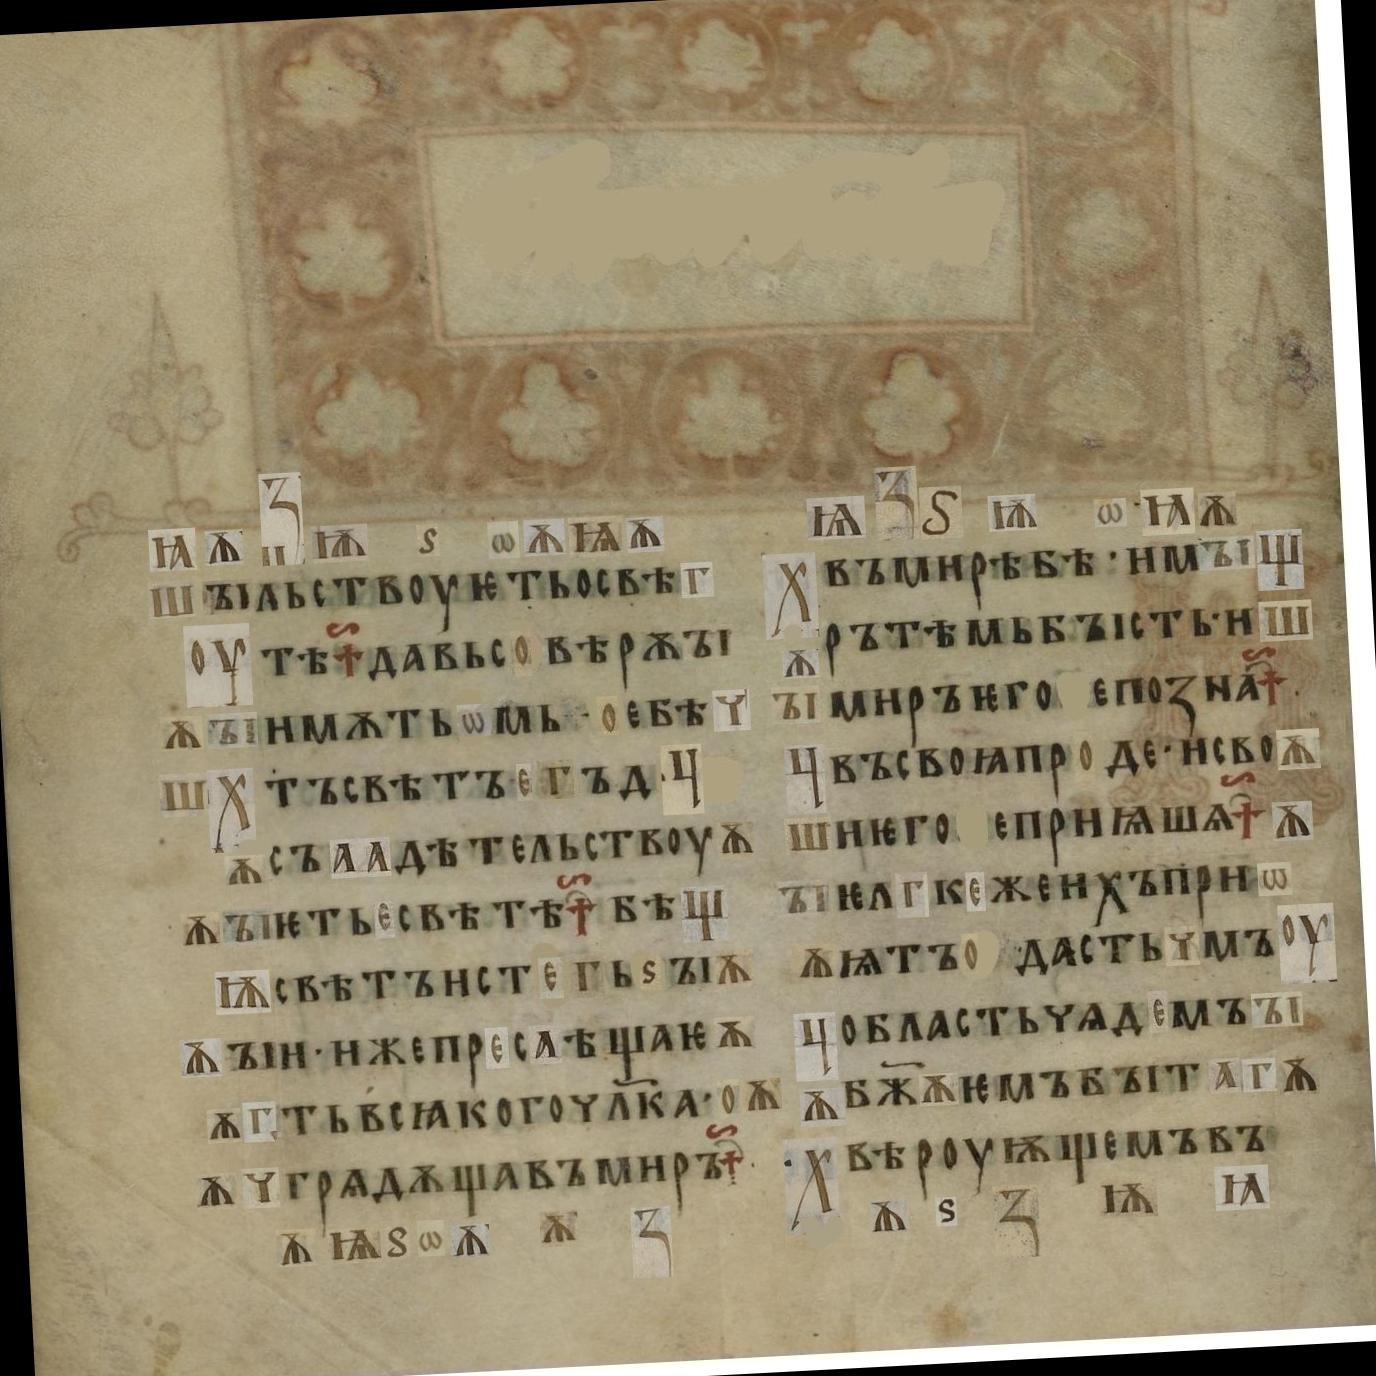 ꙗ ѫ ꙁ п ѭ ѕ ѡ ѫ ѩ ѫ
ш ꙑльствоуѥтьосвѣг
оу тѣ† давьсо вѣрѫꙑ
ѫ ꙑінмѫтьѡмь · оебѣү
ш х тъсвѣтъегъд · ч
ѫ съаадѣтельствоуѫ
ѫ ꙑіѥтьесвѣтѣ† бѣ щ
ѭ свѣтънстегьѕꙑіѫ
ѫ ꙑін · нжепресаѣщаюѫ
ѫ г тьвсꙗкогоүлка · оѫ
ѫ ү грѧдѫщавъмнръ† ·
ѫ ѩ ѕ ѡ ѫ ѫ ꙁ
ѩ ꙁ ѕ ѭ ѡ · ꙗ ѫ
х въмнрѣбѣ · нмꙑі щ
ѫ рътѣмьбꙑість · н ш
ꙑі мнръѥго епоꙁна† ·
ч въсвоꙗпро де · нсвоѫ
ш нѥго епрнѩшѧ† ѫ
ꙑі ѥлгкеженхъпрнѡ
ѫ ѩтъо дастьүмъ оу
ч областьүѧдемъꙑі
ѫ бжѫѥмъбꙑітагѫ
· х вѣроуѭщемъвъ
ѫ ѕ ꙁ ѭ ꙗ